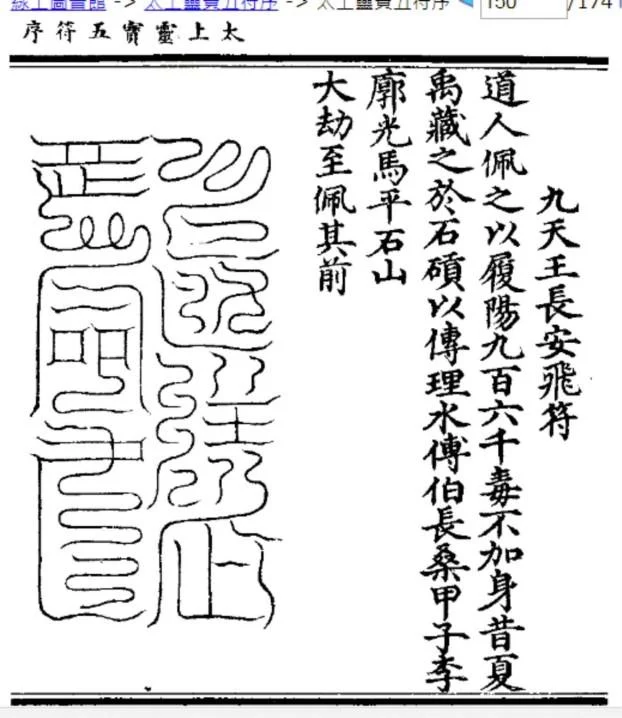 線上圖書館 -> 太上靈寶五符序 -> 太上靈寶五符序 150 /174
太上靈寶五符序
九天王長安飛符
道人佩之以履陽九百六千毒不加身昔夏
禹藏之於石磧以傳理水傅伯長桑甲子李
廓光馬平石山
大劫至佩其前